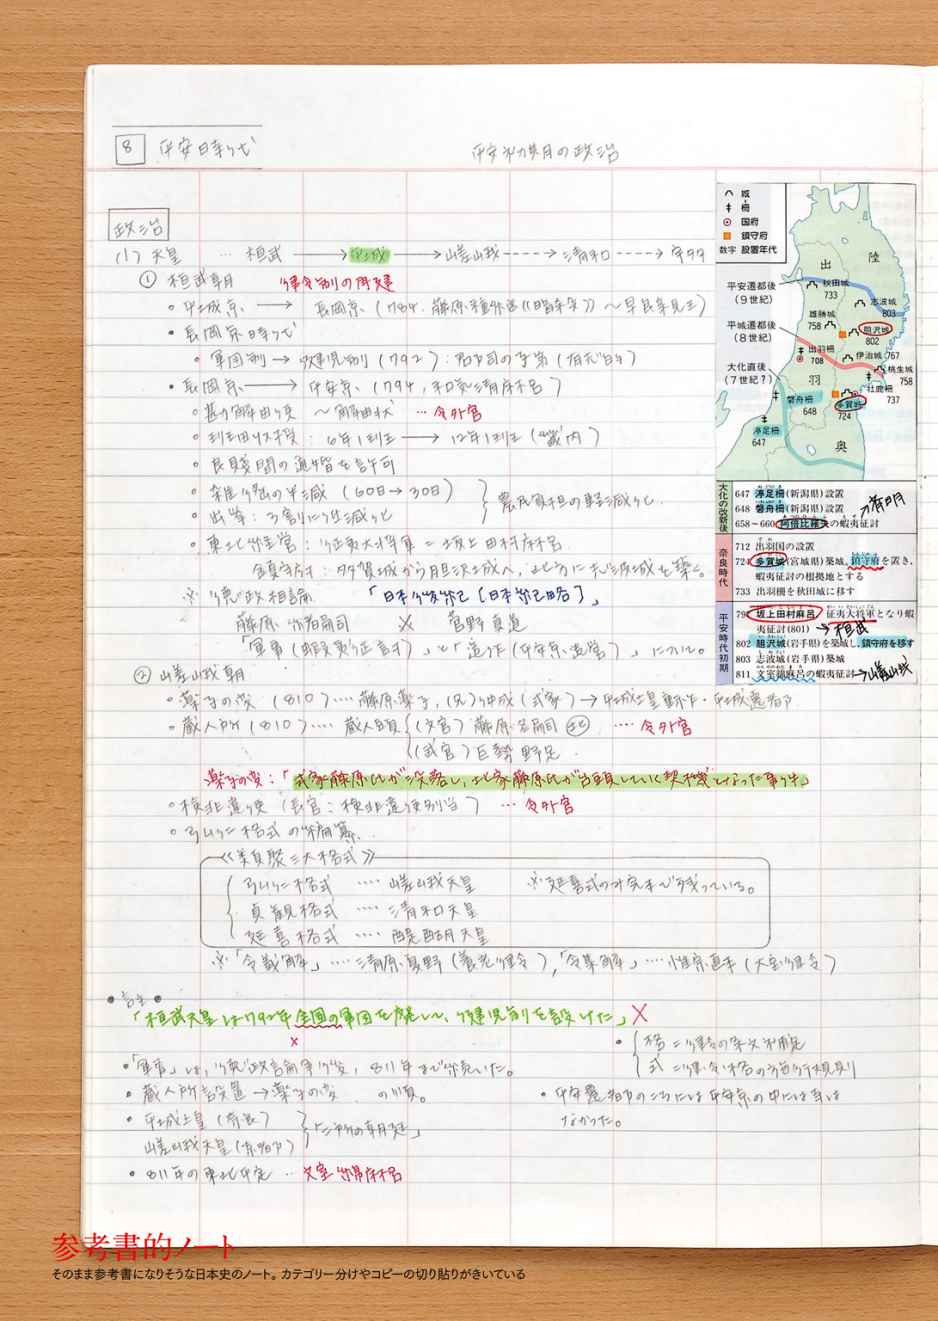 8 平安時代
平安初期の政治
政治
(1) 天皇 … 桓武 → 平城 → 嵯峨 ---→ 清和 ---→ 宇多
① 桓武朝 律令制の再建
・平城京 → 長岡京 (784. 藤原種継《暗殺》〜早良親王)
・長岡京時代
・軍団制 → 健児制 (792) : 郡司の子弟 (有志)
・長岡京 → 平安京 (794, 和気清麻呂)
・勘解由使 〜解由状 … 令外官
・班田収授 : 6年1班 → 12年1班 (畿内)
・良賤間の通婚を許可
・雑徭の半減 (60日→30日)
・出挙 : 3割に低減化
農民負担の軽減化
・東北経営 : 征夷大将軍 = 坂上田村麻呂
鎮守府 : 多賀城から胆沢城へ, 北方に志波城を築く。
※ 徳政相論 「日本後紀[日本紀略]」
藤原緒嗣 × 菅野真道
「軍事(蝦夷征討)」と「造作(平安京造営)」について。
② 嵯峨朝
・薬子の変 (810) … 藤原薬子, (兄)仲成(式家) → 平城上皇重祚・平城遷都
・蔵人所 (810) … 蔵人頭 (文官) 藤原冬嗣 北 … 令外官
(武官) 巨勢野足
薬子の変 : 「式家藤原氏が没落し, 北家藤原氏が台頭していく契機となった事件」
・検非違使 (長官 : 検非違使別当) … 令外官
・弘仁格式の編纂
《類聚三代格式》
弘仁格式 … 嵯峨天皇 ※ 延喜式のみ完本で残っている。
貞観格式 … 清和天皇
延喜格式 … 醍醐天皇
※ 「令義解」 … 清原夏野 (養老律令), 「令集解」 … 惟宗直本 (大宝律令)
「桓武天皇は792年全国の軍団を廃し, 健児制を設けた」×
×
・格 = 律令の条文補足
式 = 律令・格の施行規則
・「軍事」は, 徳政論争後, 811年まで続いた。
・蔵人所設置→薬子の変 の順。
・平安遷都のころには平安京の中には寺は
なかった。
・平城上皇 (奈良)
嵯峨天皇 (京都)
「二所の朝廷」
・811年の東北平定 … 文室綿麻呂
城
柵
国府
鎮守府
数字 設置年代
出
陸
羽
奥
平安遷都後
(9世紀)
平城遷都後
(8世紀)
大化直後
(7世紀?)
秋田城
733
志波城
803
雄勝城
758
胆沢城
802
出羽柵
708
伊治城 767
桃生城
758
牡鹿柵
737
磐舟柵
648
多賀城
724
渟足柵
647
大化の改新後
647 渟足柵(新潟県)設置
648 磐舟柵(新潟県)設置
658〜660 阿倍比羅夫の蝦夷征討
斉明
奈良時代
712 出羽国の設置
724 多賀城(宮城県)築城, 鎮守府を置き,
蝦夷征討の根拠地とする
733 出羽柵を秋田城に移す
平安時代初期
797 坂上田村麻呂 征夷大将軍となり蝦
夷征討(801) → 桓武
802 胆沢城(岩手県)を築城し, 鎮守府を移す
803 志波城(岩手県)築城
811 文室綿麻呂の蝦夷征討 → 嵯峨
参考書的ノート
そのまま参考書になりそうな日本史のノート。カテゴリー分けやコピーの切り貼りがきいている